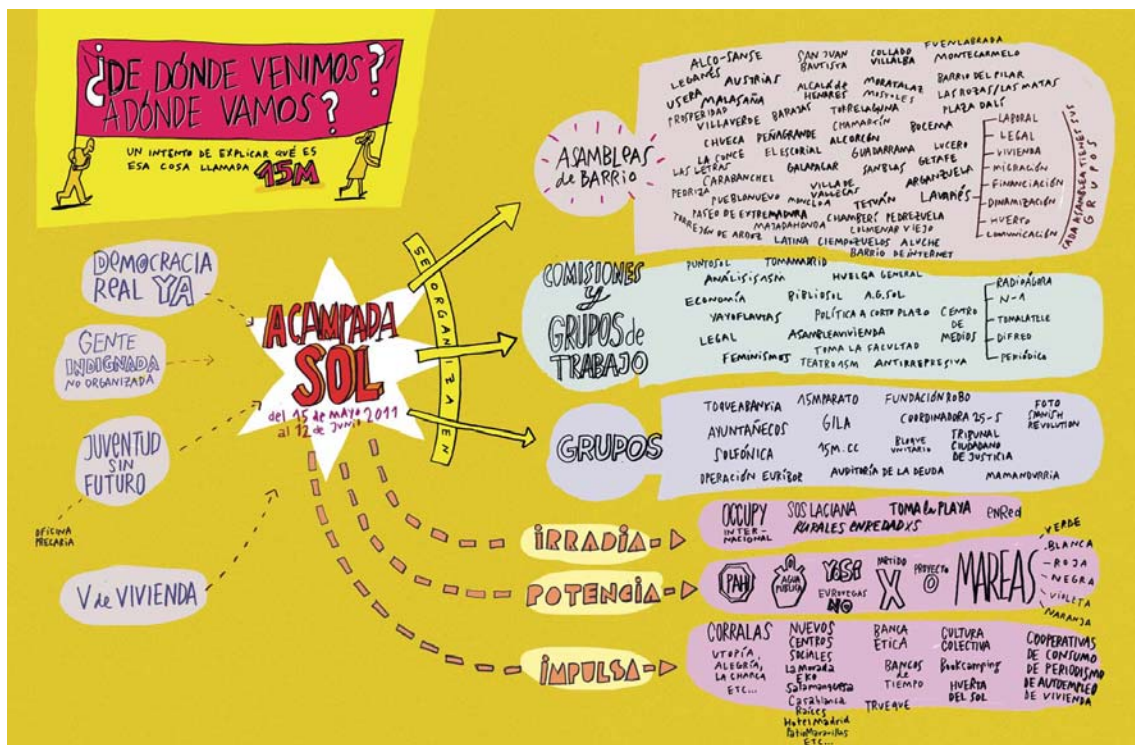 ¿DE DÓNDE VENIMOS?
A DÓNDE VAMOS?
UN INTENTO DE EXPLICAR QUÉ ES
ESA COSA LLAMADA 15M
DEMOCRACIA
REAL YA
GENTE
INDIGNADA
NO ORGANIZADA
JUVENTUD
SIN
FUTURO
OFICINA
PRECARIA
V de VIVIENDA
ACAMPADA
SOL
del 15 de MAYO 2011
al 12 de JUNIO
SE ORGANIZA EN
ASAMBLEAS
de BARRIO
ALCO-SANSE
SAN JUAN
BAUTISTA
COLLADO
VILLALBA
FUENLABRADA
MONTECARMELO
LEGANÉS
AUSTRIAS
ALCALÁ de
HENARES
MORATALAZ
MOSTOLES
BARRIO DEL PILAR
LAS ROZAS/LAS MATAS
USERA
MALASAÑA
PROSPERIDAD
VILLAVERDE
BARAJAS
TORRELAGUNA
PLAZA DALÍ
CHAMARTÍN
CHUECA
PEÑAGRANDE
ALCORCÓN
LA CONCE
EL ESCORIAL
GUADARRAMA
LUCERO
LAS LETRAS
GALAPAGAR
SANBLAS
GETAFE
CARABANCHEL
ARGANZUELA
PEDRIZA
PUEBLONUEVO
MONCLOA
VILLA DE
VALLECAS
TETUÁN
LAVAPIÉS
PASEO DE EXTREMADURA
CHAMBERÍ
PEDREZUELA
TORREJÓN DE ARDOZ
MAJADAHONDA
COLMENAR VIEJO
LATINA
CIEMPOZUELOS
ALUCHE
BARRIO DE INTERNET
LABORAL
LEGAL
VIVIENDA
MIGRACIÓN
FINANCIACIÓN
DINAMIZACIÓN
HUERTO
COMUNICACIÓN
CADA ASAMBLEA TIENE SUS
GRUPOS
COMISIONES
Y
GRUPOS de
TRABAJO
PUNTOSOL
TOMAMADRID
ANÁLISIS15M
HUELGA GENERAL
ECONOMÍA
BIBLIOSOL
A.G.SOL
YAYOFLAUTAS
POLÍTICA A CORTO PLAZO
LEGAL
ASAMBLEAVIVIENDA
TOMA LA FACULTAD
FEMINISMOS
TEATRO15M
ANTIRREPRESIVA
CENTRO
DE
MEDIOS
RADIOÁGORA
N-1
TOMALATELE
DIFRED
PERIÓDICO
GRUPOS
TOQUEABANKIA
15MPARATO
FUNDACIÓN ROBO
FOTO
SPANISH
REVOLUTION
AYUNTAÑECOS
GILA
COORDINADORA 25-S
SOLFÓNICA
15M.CC
BLOQUE
UNITARIO
TRIBUNAL
CIUDADANO
DE JUSTICIA
OPERACIÓN EURIBOR
AUDITORÍA DE LA DEUDA
MAMANDURRIA
IRRADIA
OCCUPY
INTER-
NACIONAL
SOS LACIANA
TOMA la PLAYA
enRed
RURALES ENREDADXS
POTENCIA
PAH
AGUA
PÚBLICA
YoSí
EUROVEGAS
NO
PARTIDO
X
PROYECTO
O
MAREAS
VERDE
BLANCA
ROJA
NEGRA
VIOLETA
NARANJA
IMPULSA
CORRALAS
UTOPÍA,
ALEGRÍA,
LA CHARCA
ETC...
NUEVOS
CENTROS
SOCIALES
La Morada
EKO
Salamanquesa
Casablanca
Raíces
Hotel Madrid
Patio Maravillas
ETC...
BANCA
ÉTICA
BANCOS
de
TIEMPO
TRUEQUE
CULTURA
COLECTIVA
Bookcamping
HUERTA
DEL SOL
COOPERATIVAS
DE CONSUMO
DE PERIODISMO
DE AUTOEMPLEO
DE VIVIENDA